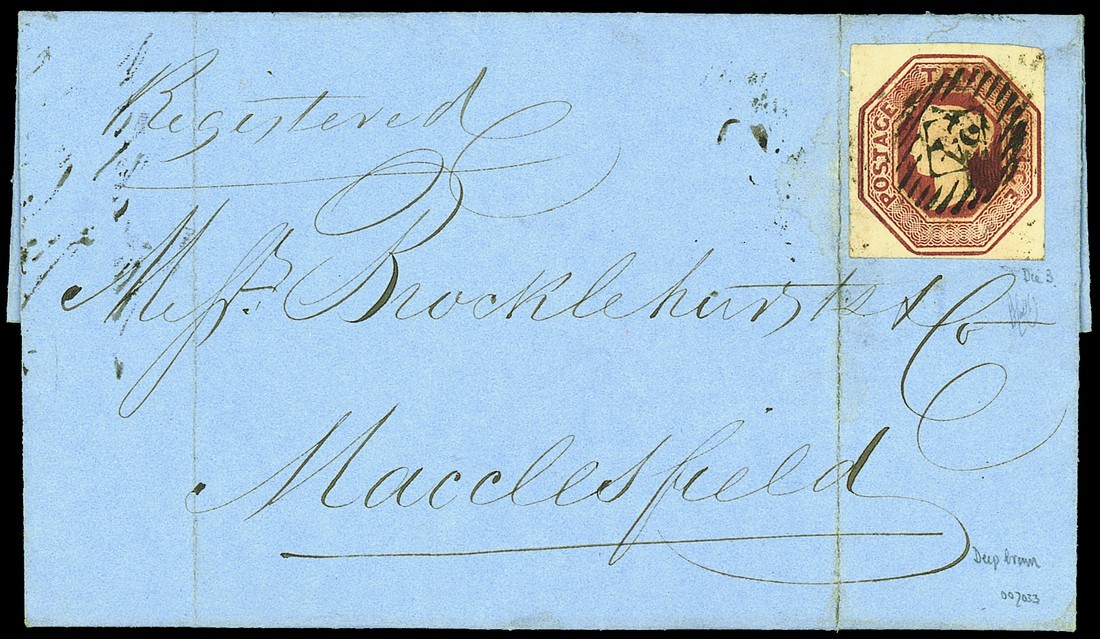 Registered
Messrs. Brocklehursts & Co
Macclesfield
POSTAGE
Die 3
Deep brown
007033